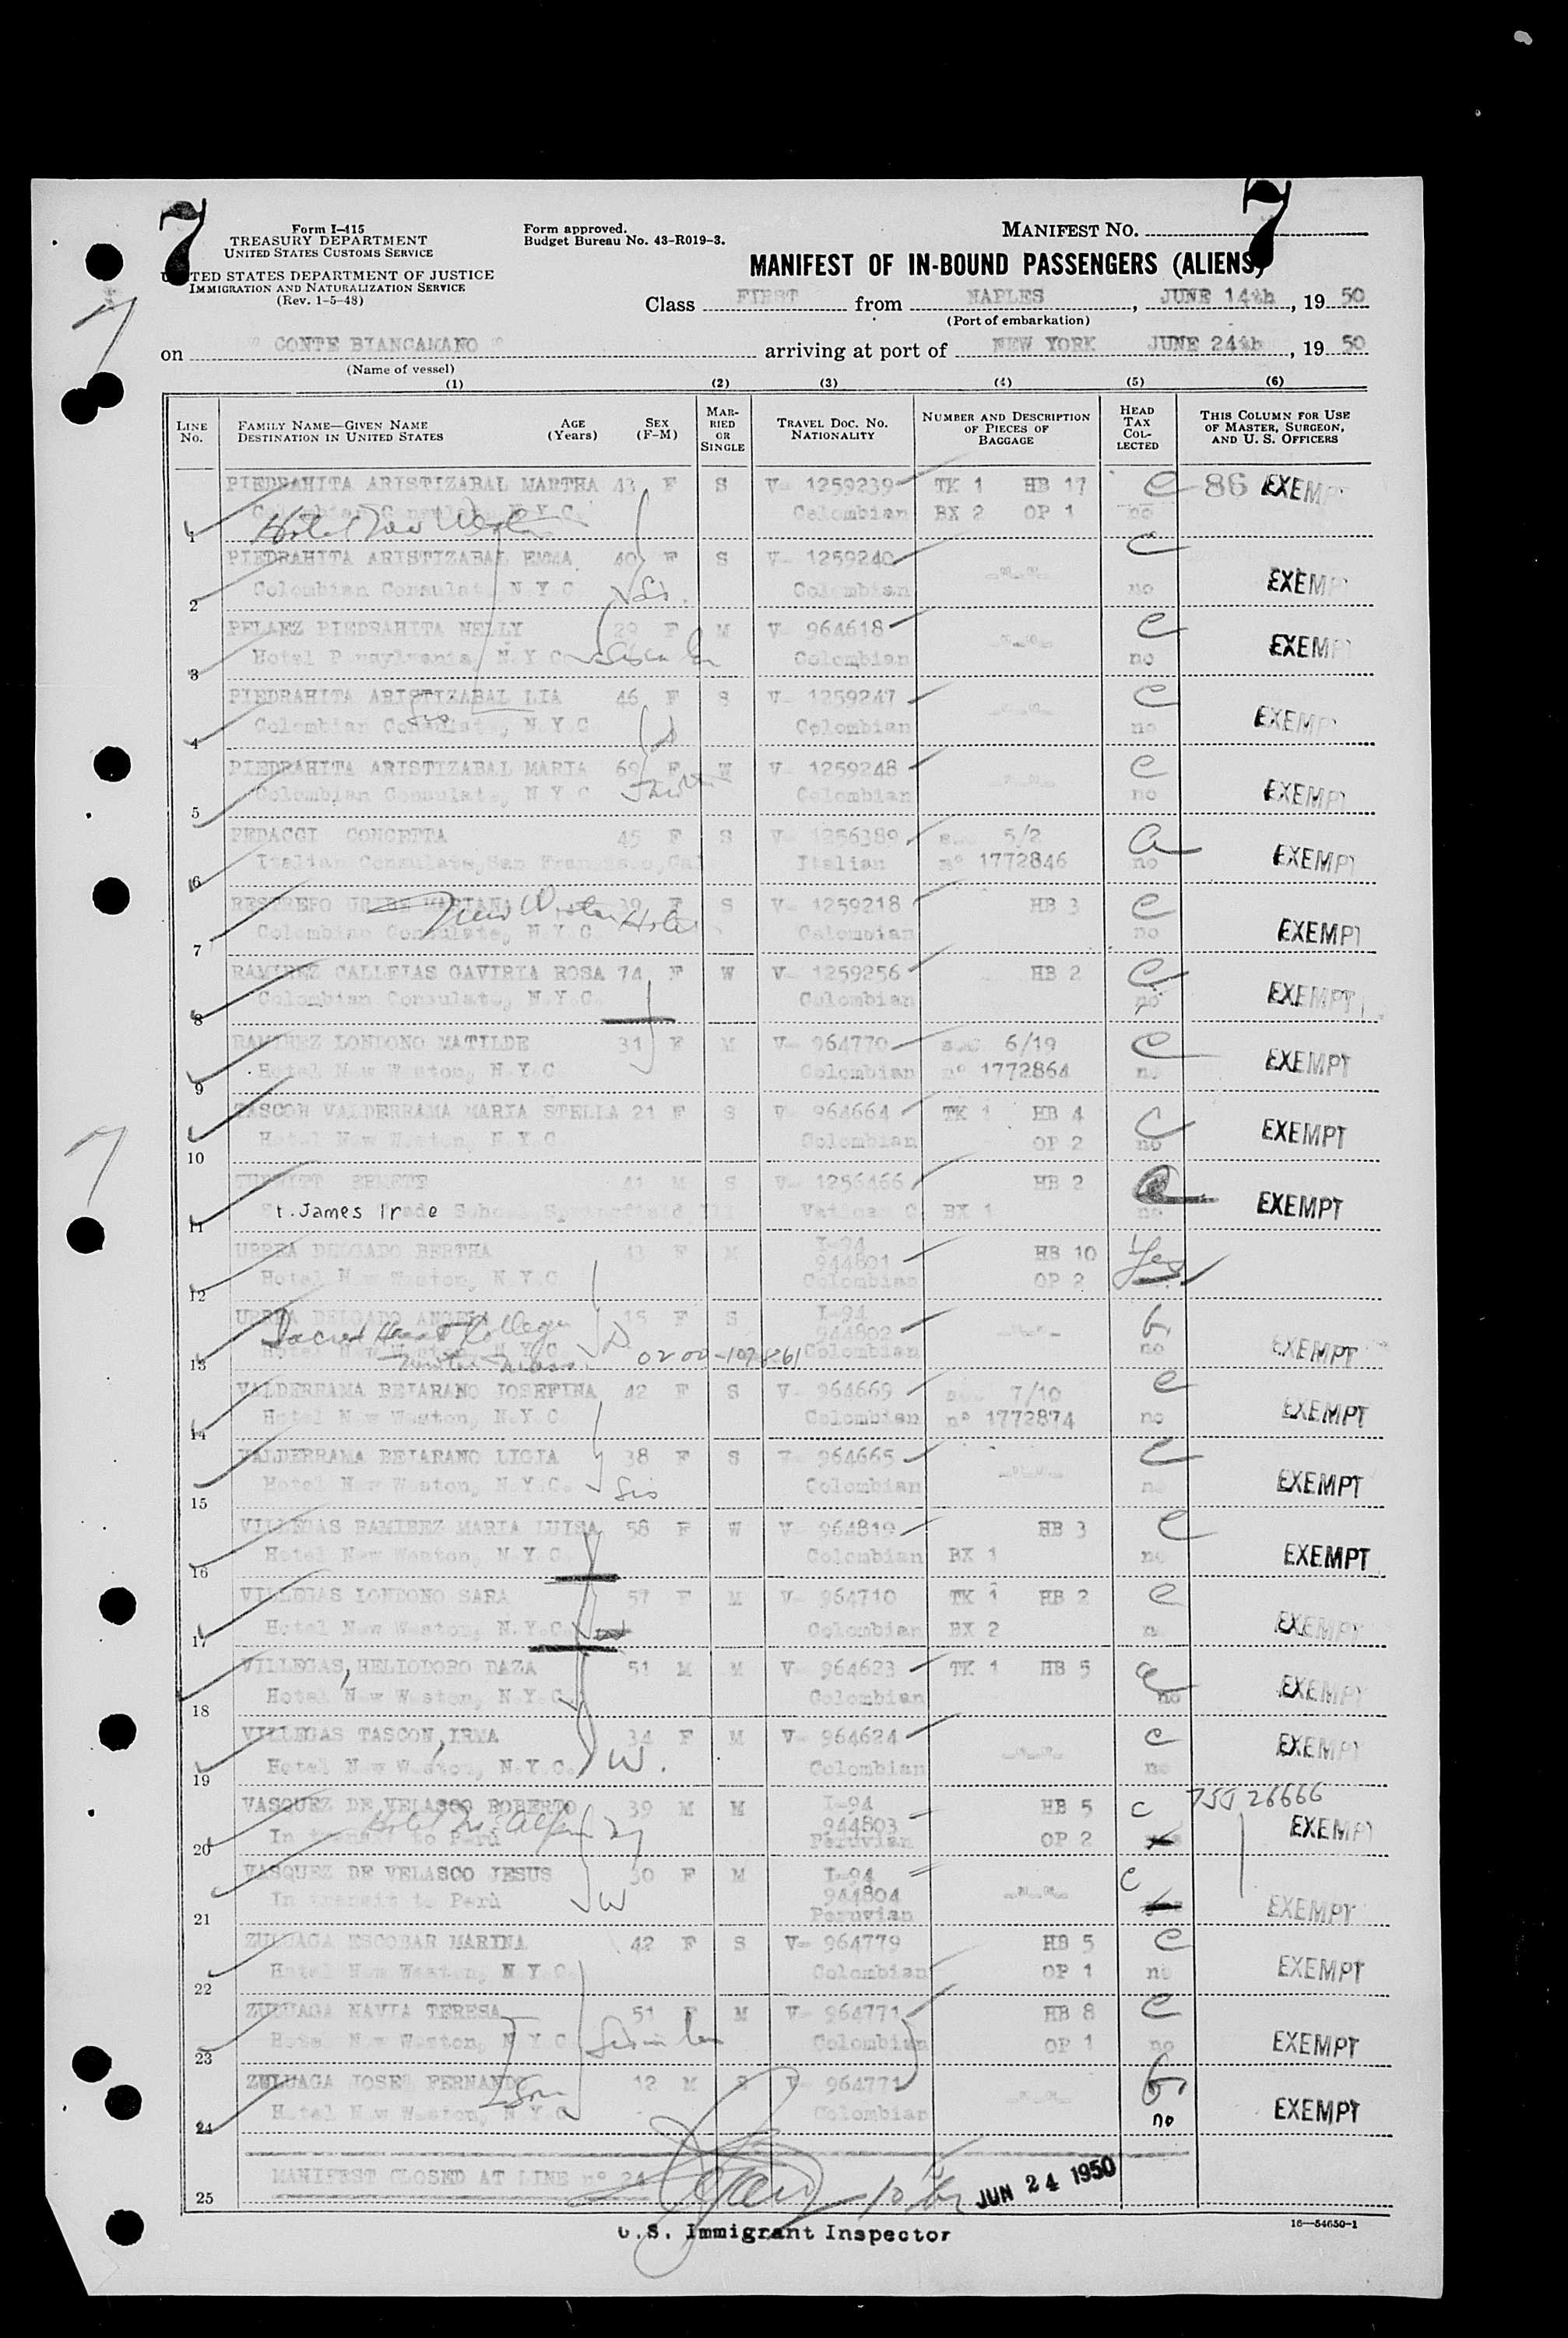 7
7
Form I-415
TREASURY DEPARTMENT
UNITED STATES CUSTOMS SERVICE
UNITED STATES DEPARTMENT OF JUSTICE
IMMIGRATION AND NATURALIZATION SERVICE
(Rev. 1-5-48)
Form approved.
Budget Bureau No. 43-R019-3.
MANIFEST NO.
MANIFEST OF IN-BOUND PASSENGERS (ALIENS)
Class FIRST from NAPLES, JUNE 14th, 1950
(Port of embarkation)
on " CONTE BIANCAMANO " arriving at port of NEW YORK JUNE 24th, 1950
(Name of vessel)
(1) (2) (3) (4) (5) (6)
LINE NO. FAMILY NAME—GIVEN NAME DESTINATION IN UNITED STATES AGE (Years) SEX (F-M) MARRIED OR SINGLE TRAVEL DOC. NO. NATIONALITY NUMBER AND DESCRIPTION OF PIECES OF BAGGAGE HEAD TAX COLLECTED THIS COLUMN FOR USE OF MASTER, SURGEON, AND U. S. OFFICERS
PIEDRAHITA ARISTIZABAL MARTHA 43 F S V- 1259239 TK 1 HB 17 C 86 EXEMPT
1 Colombian Consulate N.Y.C. Colombian BX 2 OP 1 no
Hotel New Weston
PIEDRAHITA ARISTIZABAL EMMA 40 F S V- 1259240 C
2 Colombian Consulate, N.Y.C. Sis. Colombian no EXEMPT
PELAEZ PIEDRAHITA NELLY 29 F M V- 964618 C
3 Hotel Pensylvania, N.Y.C. Colombian no EXEMPT
PIEDRAHITA ARISTIZABAL LIA 46 F S V- 1259247 C
4 Colombian Consulate, N.Y.C. Colombian no EXEMPT
PIEDRAHITA ARISTIZABAL MARIA 69 F W V- 1259248 C
5 Colombian Consulate, N.Y.C. Colombian no EXEMPT
PEDACGI CONCETTA 45 F S V- 1256389 5/2
6 Italian Consulate, San Francisco, Cal Italian n° 1772846 no EXEMPT
RESTREPO URIBE MARIANA 39 F S V- 1259218 HB 3 C
7 Colombian Consulate, N.Y.C. Colombian no EXEMPT
New Weston Hotel
RAMIREZ CALLEJAS GAVIRIA ROSA 74 F W V- 1259256 HB 2 C
8 Colombian Consulate, N.Y.C. Colombian no EXEMPT
RAMIREZ LONDONO MATILDE 31 F M V- 964770 6/19 C
9 Hotel New Weston, N.Y.C. Colombian n° 1772864 no EXEMPT
TASCON VALDERRAMA MARIA STELLA 21 F S V- 964664 TK 1 HB 4 C
10 Hotel New Weston, N.Y.C. Colombian OP 2 no EXEMPT
41 M S V- 1256466 HB 2
11 St. James Trade School, Springfield Ill Vatican C BX 1 no EXEMPT
URREA DELGADO BERTHA 43 F M I-94 944801 HB 10 Yes
12 Hotel New Weston, N.Y.C. Colombian OP 2
URREA DELGADO ANGELA 15 F S I-94 944802
Sacred Heart College
13 Hotel New Weston, N.Y.C. 0200-107861 Colombian no EXEMPT
VALDERRAMA BEJARANO JOSEFINA 42 F S V- 964669 7/10 C
14 Hotel New Weston, N.Y.C. Colombian n° 1772874 no EXEMPT
VALDERRAMA BEJARANO LIGIA 38 F S V- 964665 C
15 Hotel New Weston, N.Y.C. Sis Colombian no EXEMPT
VILLEGAS RAMIREZ MARIA LUISA 58 F W V- 964819 HB 3 C
16 Hotel New Weston, N.Y.C. Colombian BX 1 no EXEMPT
VILLEGAS LONDONO SARA 57 F M V- 964710 TK 1 HB 2 C
17 Hotel New Weston, N.Y.C. Colombian BX 2 no EXEMPT
VILLEGAS, HELIODORO DAZA 51 M M V- 964623 TK 1 HB 5 C
18 Hotel New Weston, N.Y.C. Colombian no EXEMPT
VILLEGAS TASCON, IRMA 34 F M V- 964624 C
19 Hotel New Weston, N.Y.C. W. Colombian no EXEMPT
VASQUEZ DE VELASCO ROBERTO 39 M M I-94 944803 HB 5 C 26666
20 In transit to Perù Peruvian OP 2 EXEMPT
VASQUEZ DE VELASCO JESUS 30 F M I-94 944804 C
21 In transit to Perù W Peruvian EXEMPT
ZULUAGA ESCOBAR MARINA 42 F S V- 964779 HB 5 C
22 Hotel New Weston, N.Y.C. Colombian OP 1 no EXEMPT
ZULUAGA NAVIA TERESA 51 F M V- 964771 HB 8 C
23 Hotel New Weston, N.Y.C. Colombian OP 1 no EXEMPT
ZULUAGA JOSE FERNANDO 12 M S V- 964771
24 Hotel New Weston, N.Y.C. Son Colombian no EXEMPT
25 MANIFEST CLOSED AT LINE n° 24 JUN 24 1950
U.S. Immigrant Inspector
16—54650-1
7
7